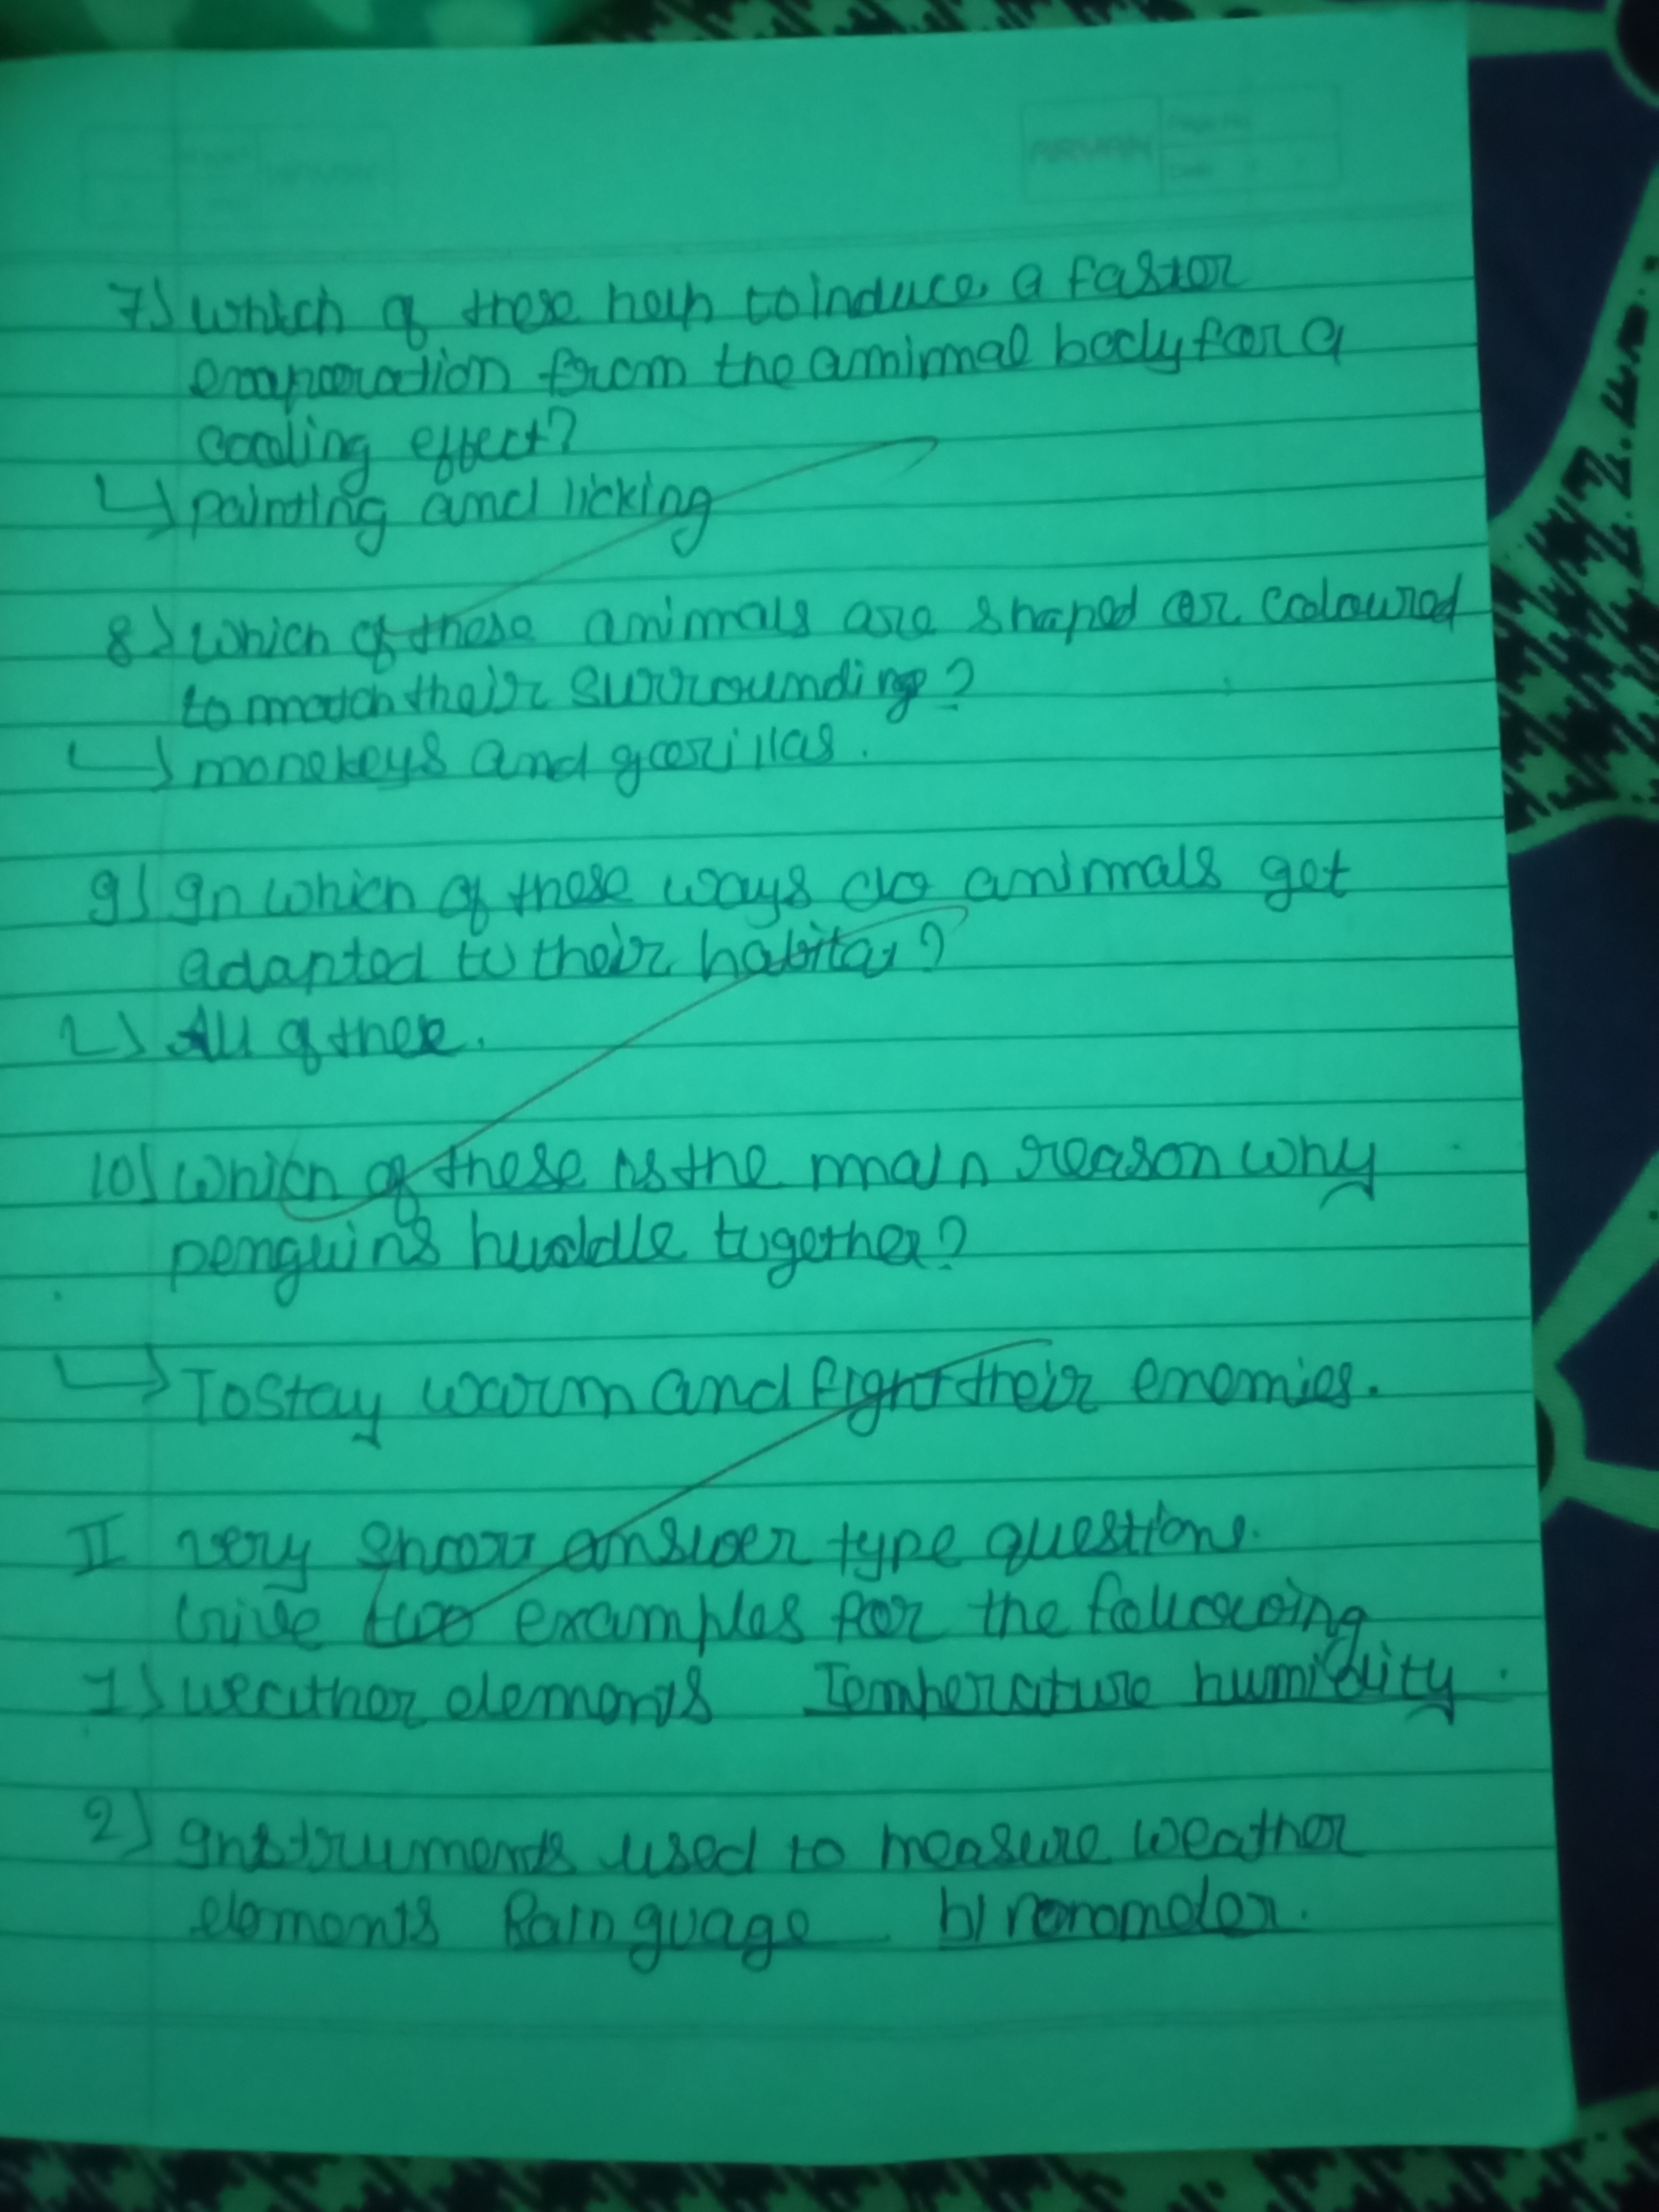 ARMAN Page No.
Date
7) which of these help to induce a faster
evaporation from the amimal body for a
cooling effect?
↳ painting and licking
8) which of these animals are shaped or coloured
to match their surrounding?
↳ monekeys and gorillas.
9) In which of these ways do animals get
adapted to their habitat?
↳ All of these.
10) which of these is the main reason why
penguins huddle together?
↳ To stay warm and fight their enemies.
II very short answer type questions.
Give two examples for the following
1) weather elements Temperature humidity.
2) Instruments used to measure weather
elements Rain guage